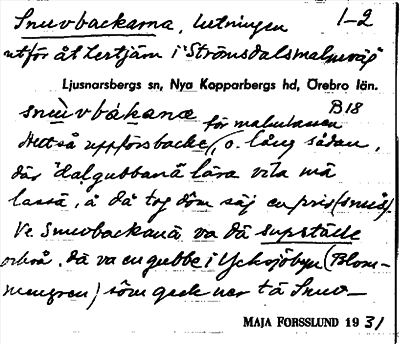 Snuvbackarna, lutningen 1-2
utför åt Lertjärn i "Strömsdalsmalmväg"
Ljusnarsbergs sn, Nya Kopparbergs hd, Örebro län.
snùvbákana B18
för malmlassen
Hett så uppförsbacke, o. lång sådan,
där dalgubbanä lära vila mä
lassä, å då tog dôm säj en pris (snus).
Ve Snuvbackanä va dä supställe
också. Dä va en gubbe i Yckosjöbyn (Blom-
mengren) sôm geck ner tä Snuv-
MAJA FORSSLUND 1931